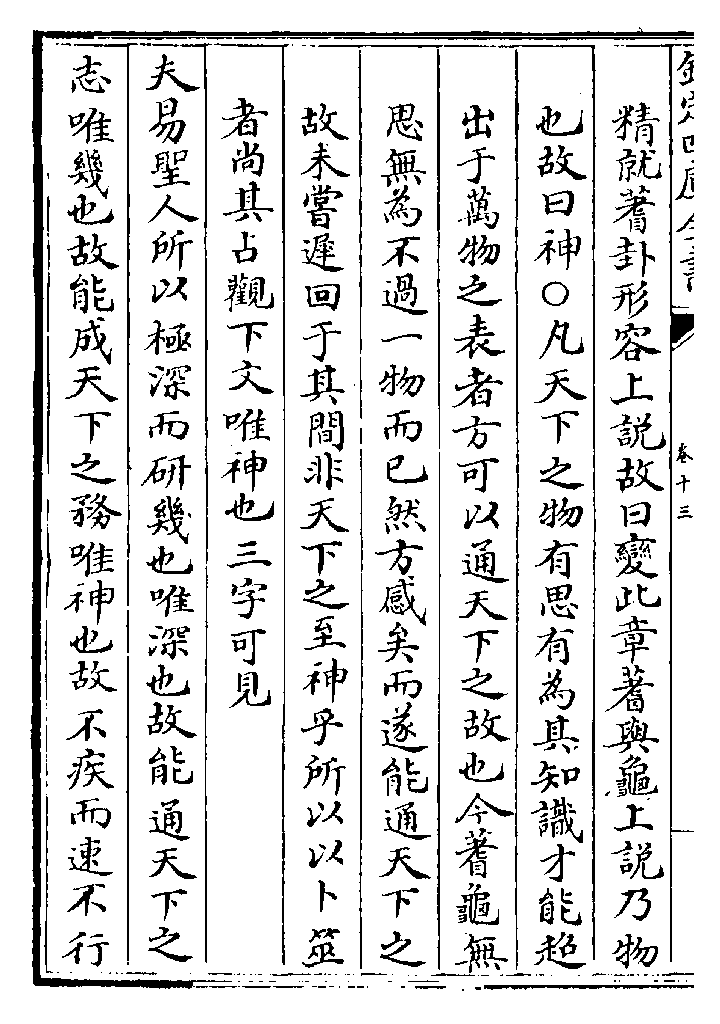 欽定四庫全書
卷十三
精就蓍卦形容上説故曰變此章蓍與龜上説乃物
也故曰神○凡天下之物有思有為其知識才能超
出于萬物之表者方可以通天下之故也今蓍龜無
思無為不過一物而已然方感矣而遂能通天下之
故未嘗遲回于其間非天下之至神乎所以以卜筮
者尚其占觀下文唯神也三字可見
夫易聖人所以極深而研幾也唯深也故能通天下之
志唯幾也故能成天下之務唯神也故不疾而速不行